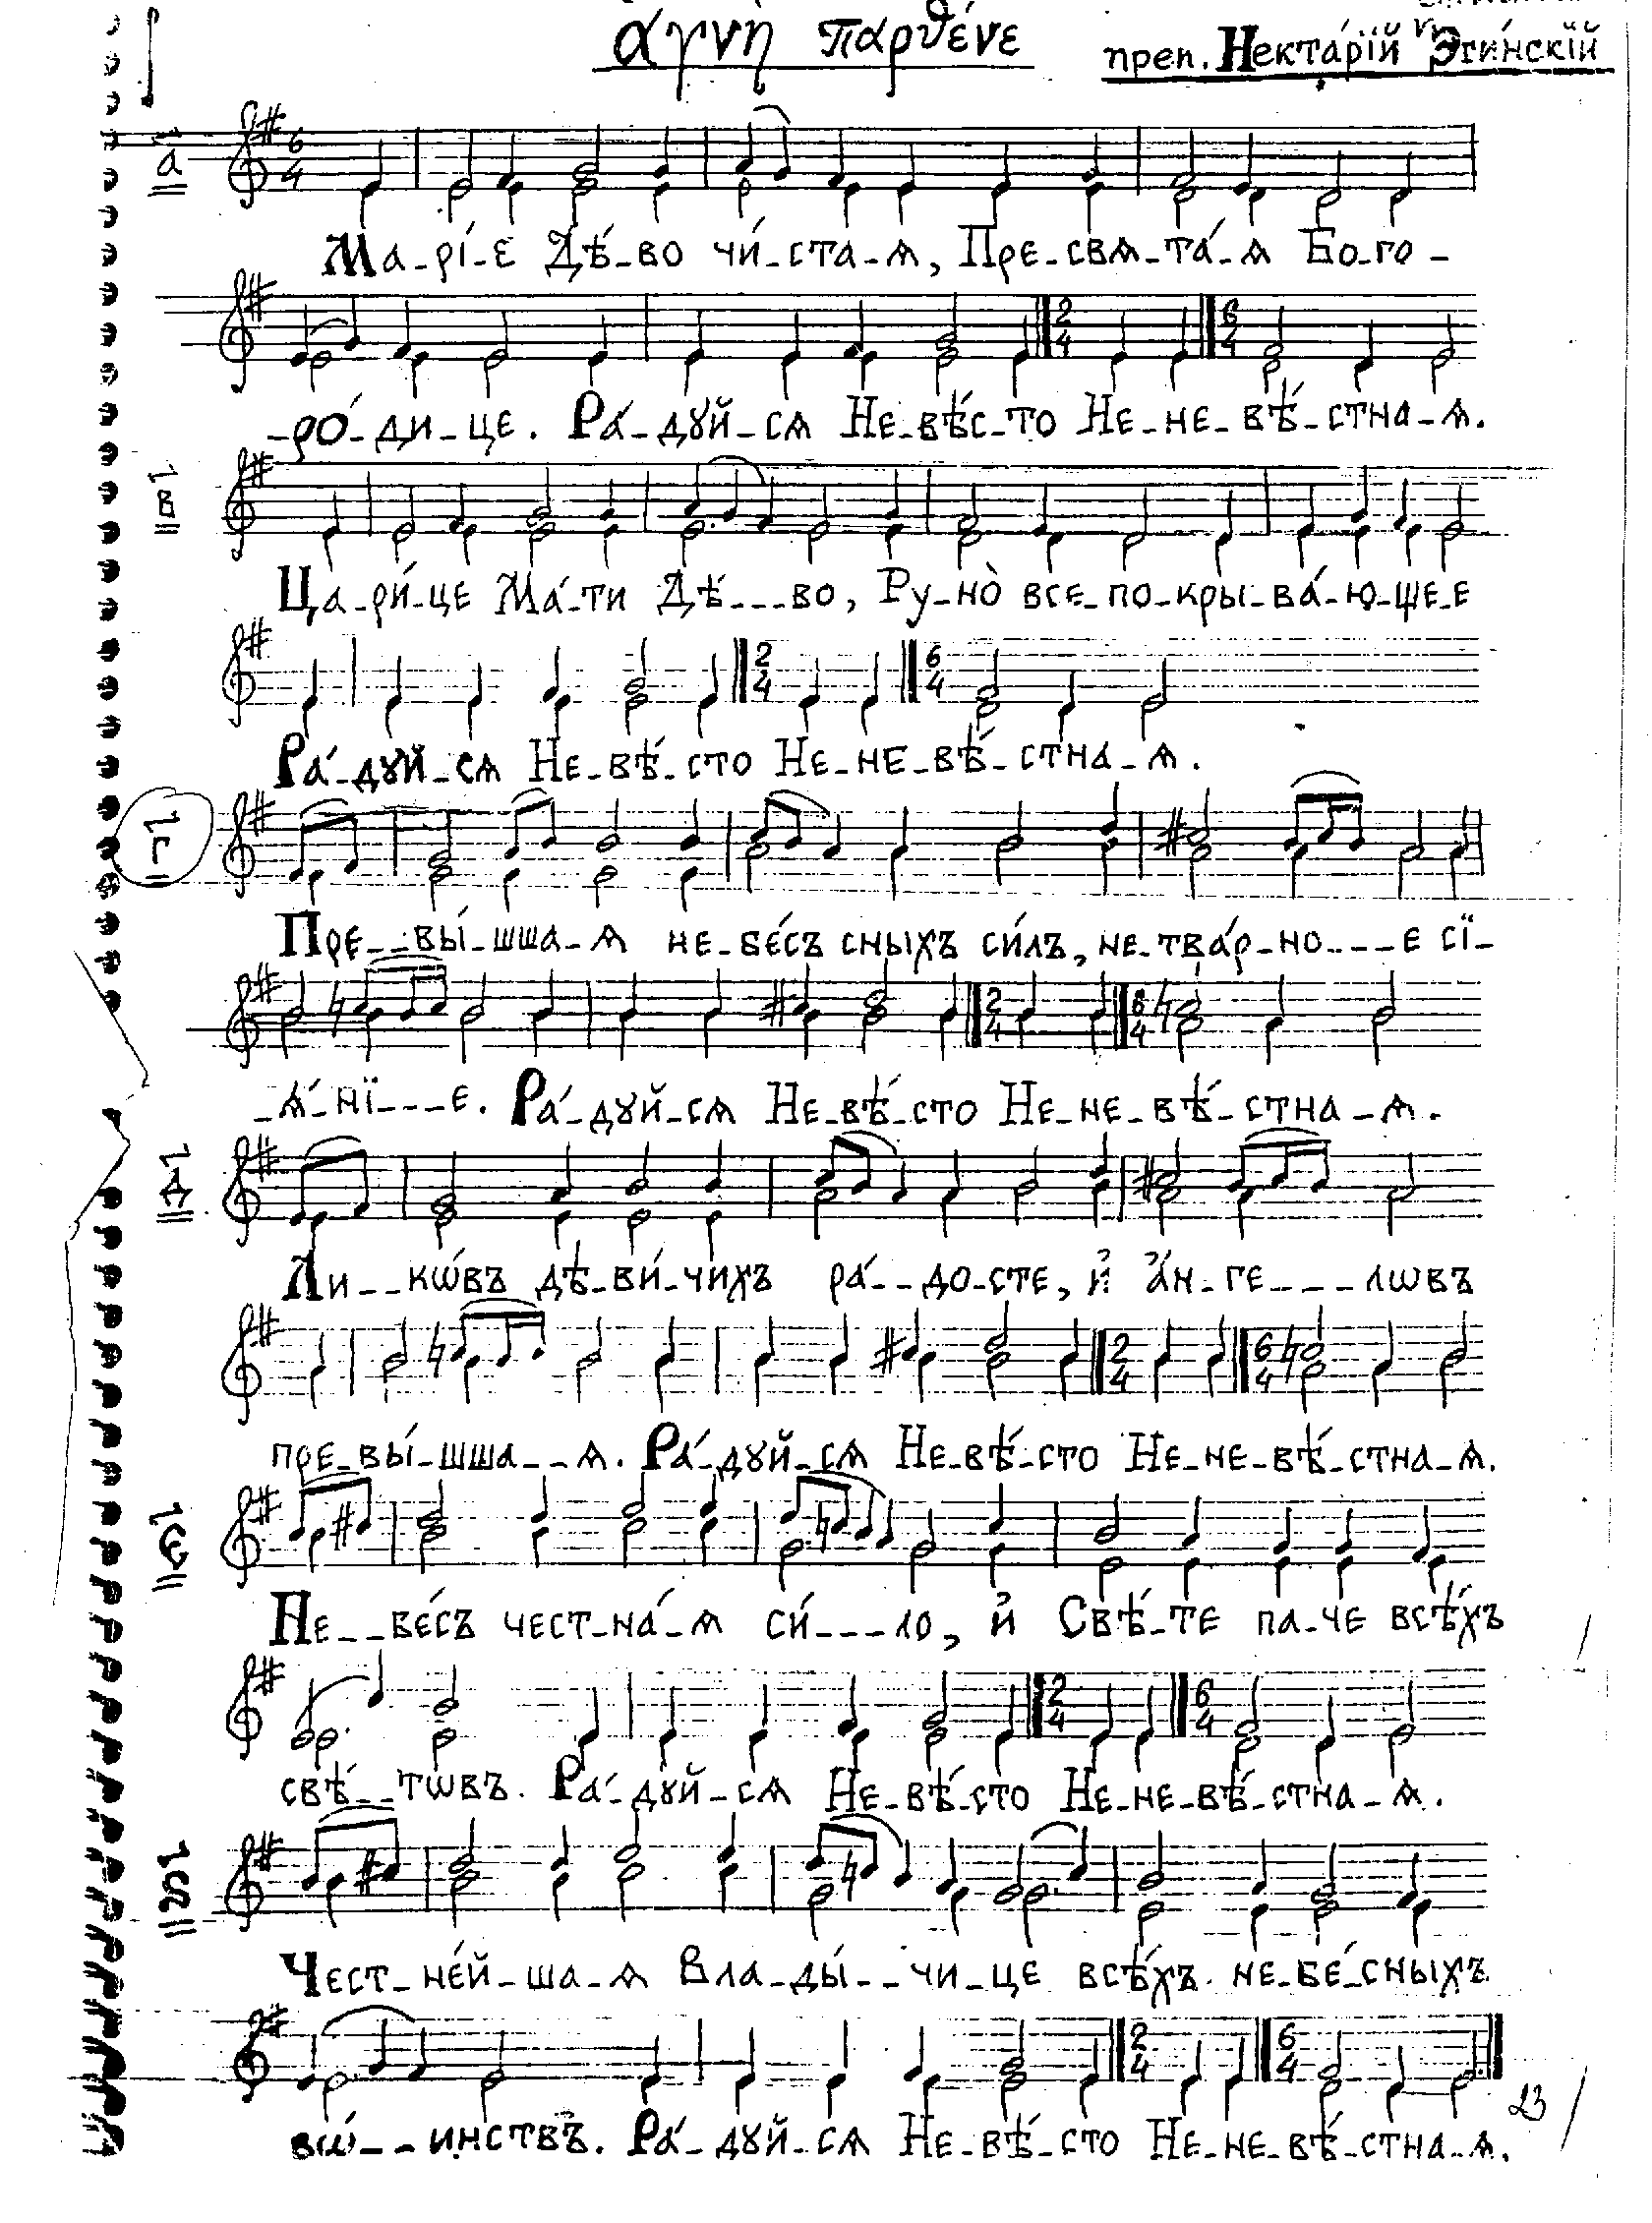 ἁγνὴ παρθένε преп. Нектарїй Эгинскїй
а
Ма-рі́-е Дѣ́-во чи́-ста-ѧ, Пре-свѧ-та́-ѧ Бо-го-
-ро́-ди-це. Ра́-дꙋй-сѧ Не-вѣ́с-то Не-не-вѣ́-стна-ѧ.
в
Ца-ри́-це Ма́-ти Дѣ́---во, Ру-но̀ все-по-кры-ва́-ю-ще-е
Ра́-дꙋй-сѧ Не-вѣ́-сто Не-не-вѣ́-стна-ѧ.
г
Пре--вы́-шша-ѧ не-бе́съ сныхъ си́лъ, не-тва́р-но---е сї-
-ѧ́-нї---е. Ра́-дꙋй-сѧ Не-вѣ́-сто Не-не-вѣ́-стна-ѧ.
д
Ли--кѡ́въ дѣ-ви́-чихъ ра́--до-сте, и҆ а҆́н-ге---лѡвъ
пре-вы́-шша--ѧ. Ра́-дꙋй-сѧ Не-вѣ́-сто Не-не-вѣ́-стна-ѧ.
є
Не--бе́съ чест-на́-ѧ си́---ло, и҆ Свѣ́-те па-че всѣ́хъ
свѣ́--тѡвъ. Ра́-дꙋй-сѧ Не-вѣ́-сто Не-не-вѣ́-стна-ѧ.
ѕ
Чест-не́й-ша-ѧ Вла-ды́--чи-це всѣ́хъ не-бе́-сныхъ
вѡ́--инствъ. Ра́-дꙋй-сѧ Не-вѣ́-сто Не-не-вѣ́-стна-ѧ.
23